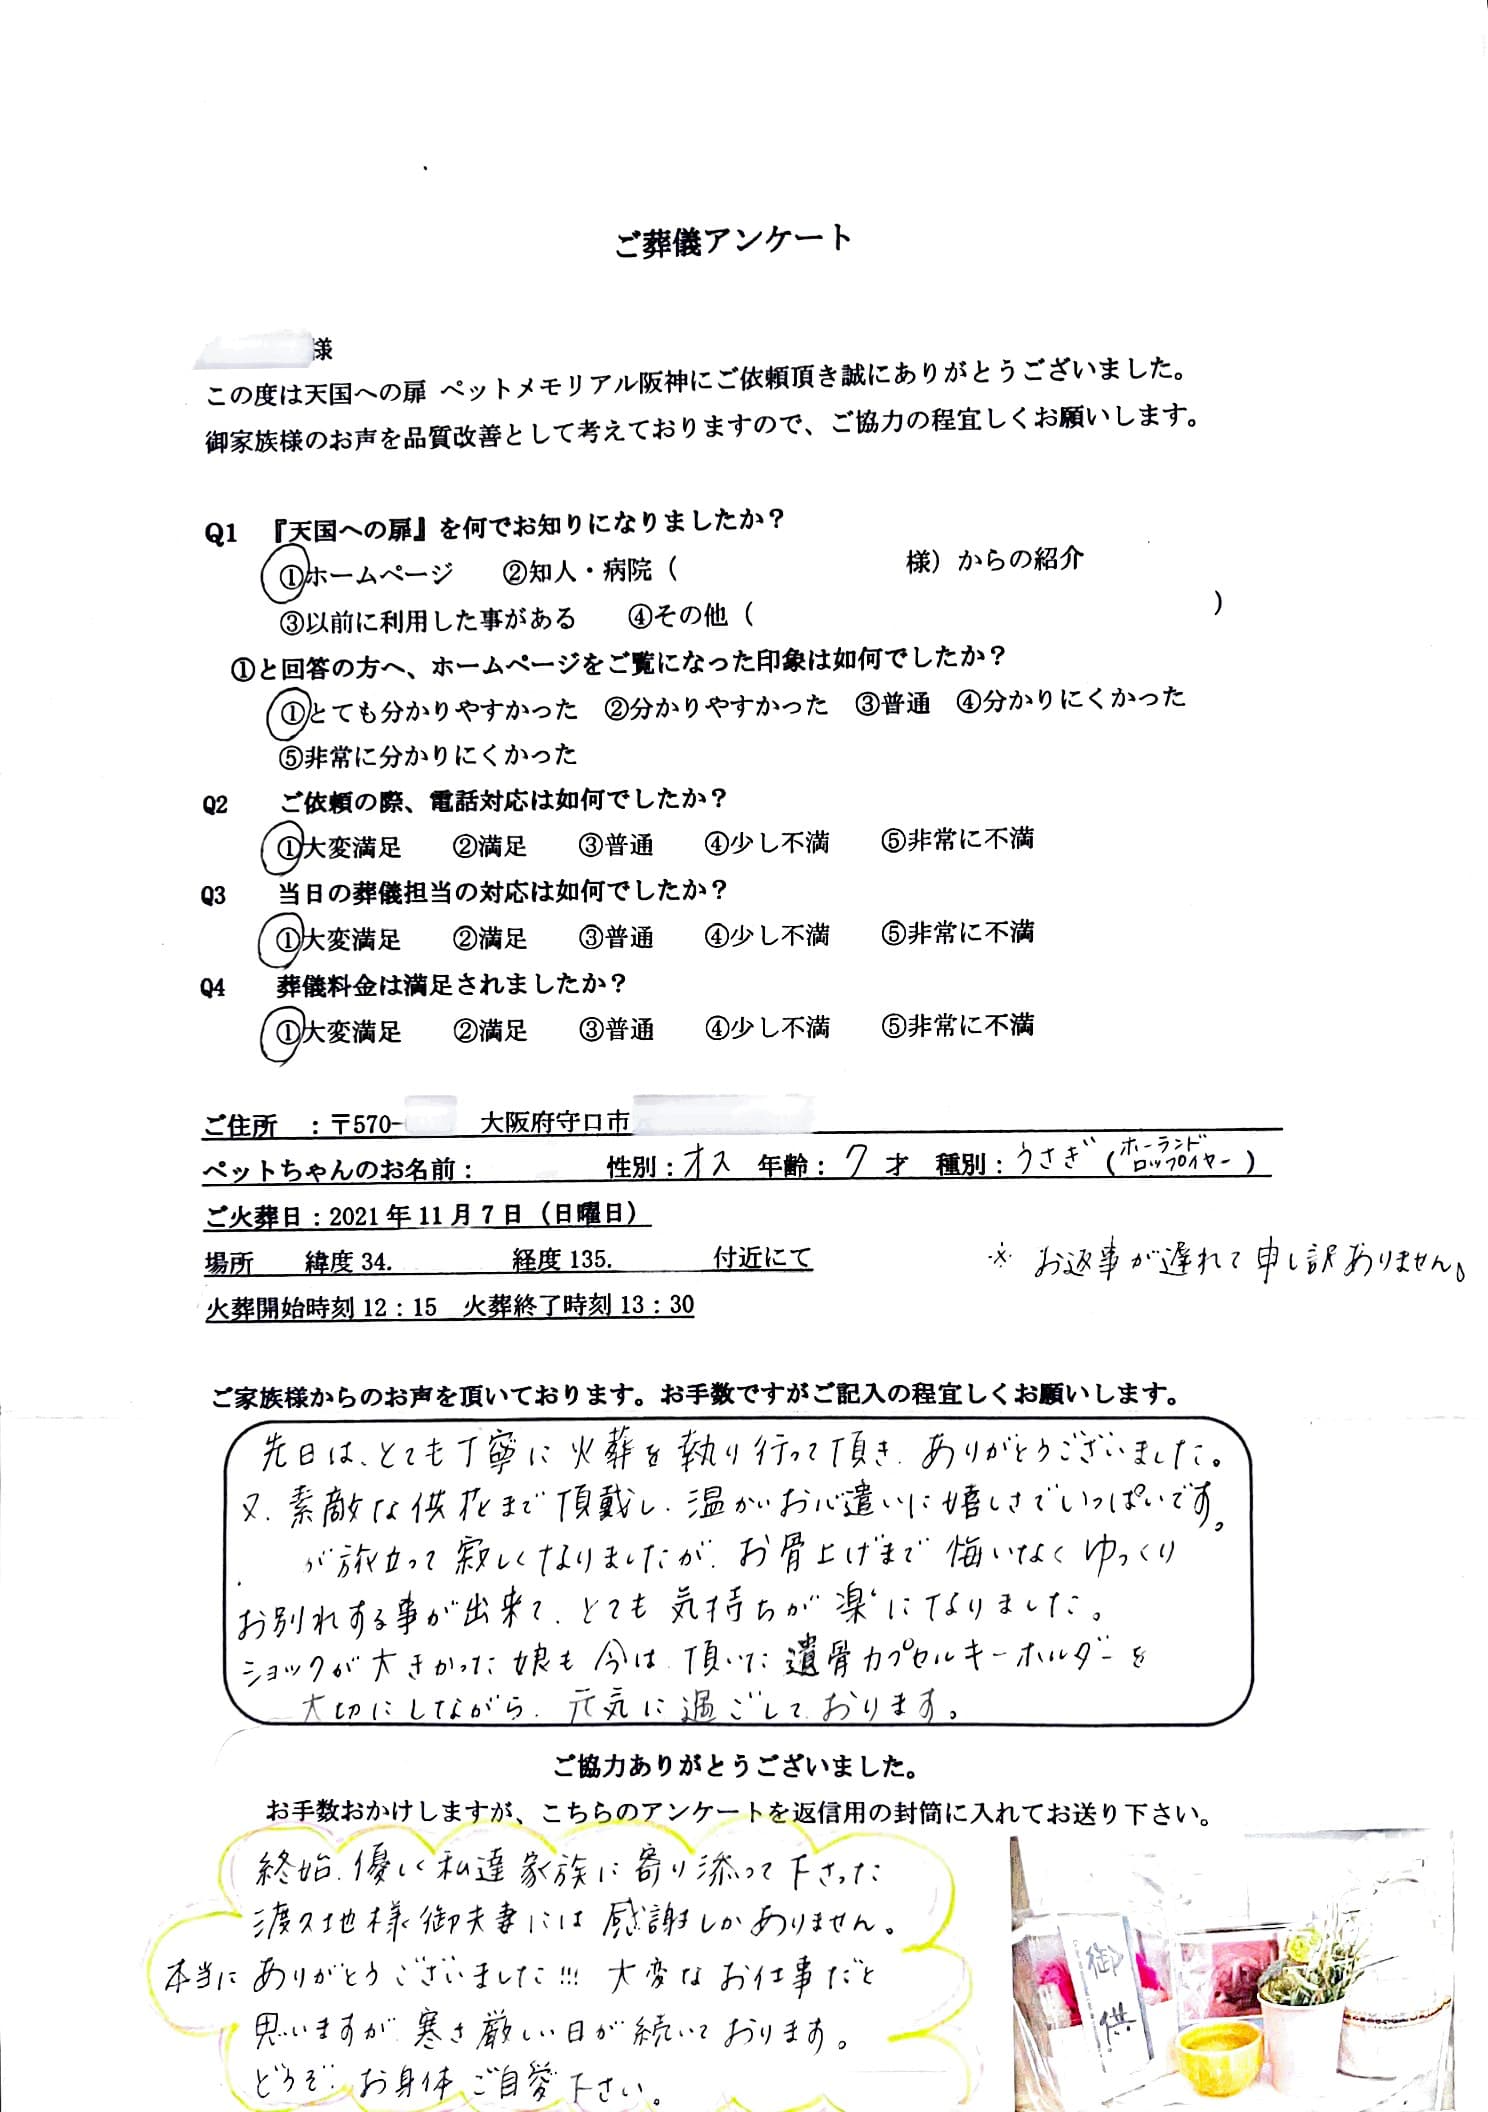 ご葬儀アンケート
様
この度は天国への扉 ペットメモリアル阪神にご依頼頂き誠にありがとうございました。
御家族様のお声を品質改善として考えておりますので、ご協力の程宜しくお願いします。
Q1 『天国への扉』を何でお知りになりましたか？
①ホームページ ②知人・病院（ 様）からの紹介
③以前に利用した事がある ④その他（ ）
①と回答の方へ、ホームページをご覧になった印象は如何でしたか？
①とても分かりやすかった ②分かりやすかった ③普通 ④分かりにくかった
⑤非常に分かりにくかった
Q2 ご依頼の際、電話対応は如何でしたか？
①大変満足 ②満足 ③普通 ④少し不満 ⑤非常に不満
Q3 当日の葬儀担当の対応は如何でしたか？
①大変満足 ②満足 ③普通 ④少し不満 ⑤非常に不満
Q4 葬儀料金は満足されましたか？
①大変満足 ②満足 ③普通 ④少し不満 ⑤非常に不満
ご住所 ：〒570- 大阪府守口市
ペットちゃんのお名前： 性別：オス 年齢：7 才 種別：うさぎ（ホーランドロップイヤー）
ご火葬日：2021年11月7日（日曜日）
場所 緯度34. 経度135. 付近にて
※ お返事が遅れて申し訳ありません。
火葬開始時刻12：15 火葬終了時刻13：30
ご家族様からのお声を頂いております。お手数ですがご記入の程宜しくお願いします。
先日は、とても丁寧に火葬を執り行って頂き、ありがとうございました。
又、素敵な供花まで頂戴し、温かいお心遣いに嬉しさでいっぱいです。
が旅立って寂しくなりましたが、お骨上げまで悔いなくゆっくり
お別れする事が出来て、とても気持ちが楽になりました。
ショックが大きかった娘も今は、頂いた遺骨カプセルキーホルダーを
大切にしながら、元気に過ごしております。
ご協力ありがとうございました。
お手数おかけしますが、こちらのアンケートを返信用の封筒に入れてお送り下さい。
終始、優しく私達家族に寄り添って下さった
渡久地様御夫妻には感謝しかありません。
本当にありがとうございました!!! 大変なお仕事だと
思いますが、寒さ厳しい日が続いております。
どうぞ、お身体ご自愛下さい。
御供